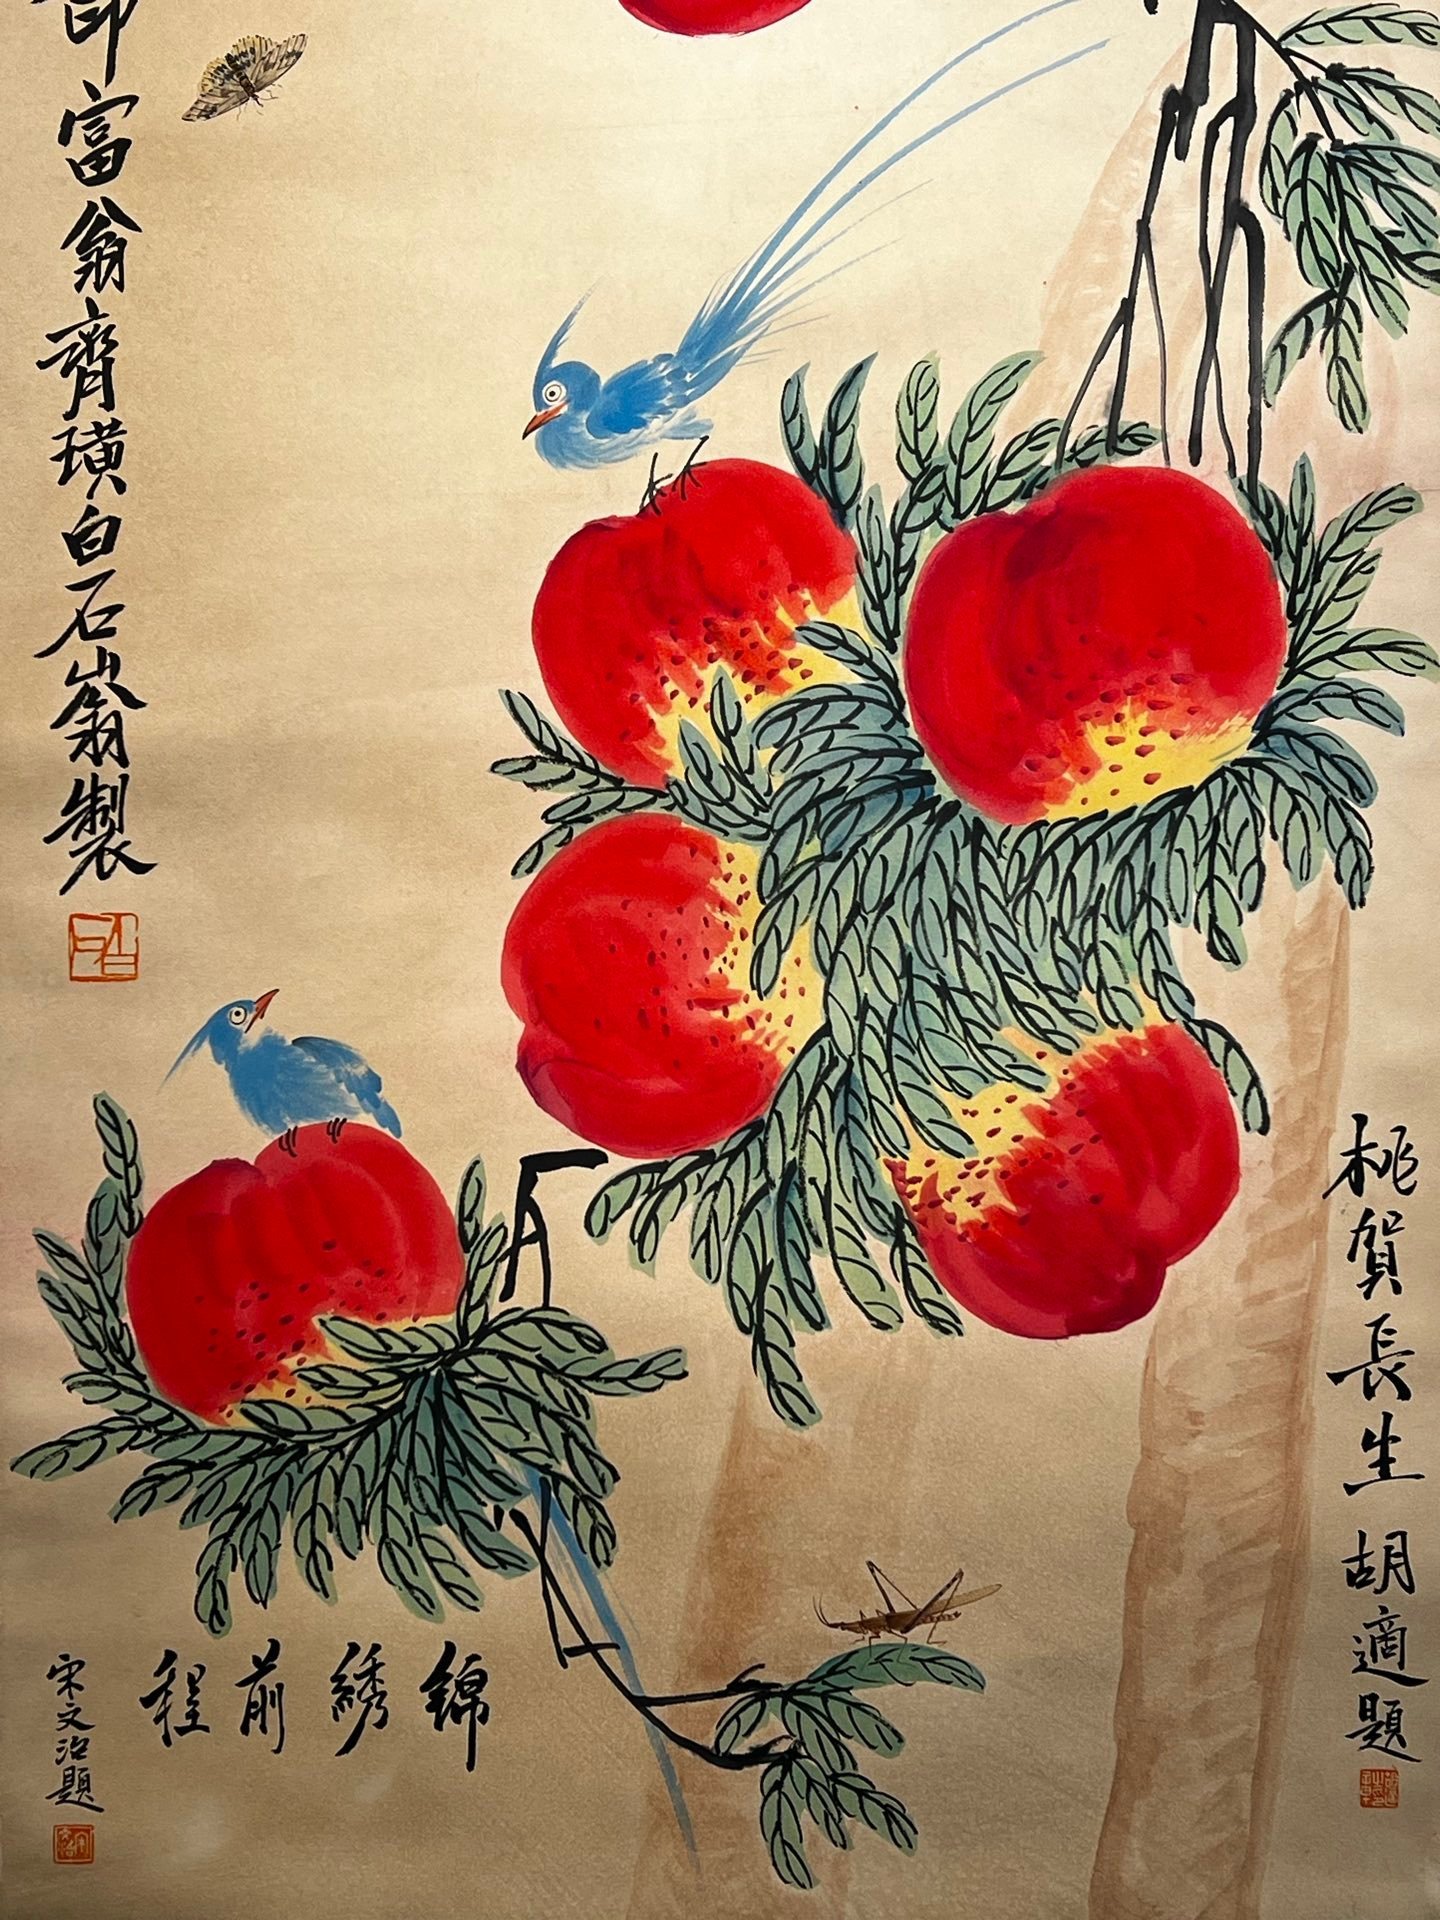 桃賀長生 胡適題
印富翁齊璜白石山翁製
錦綉前程
宋文治題